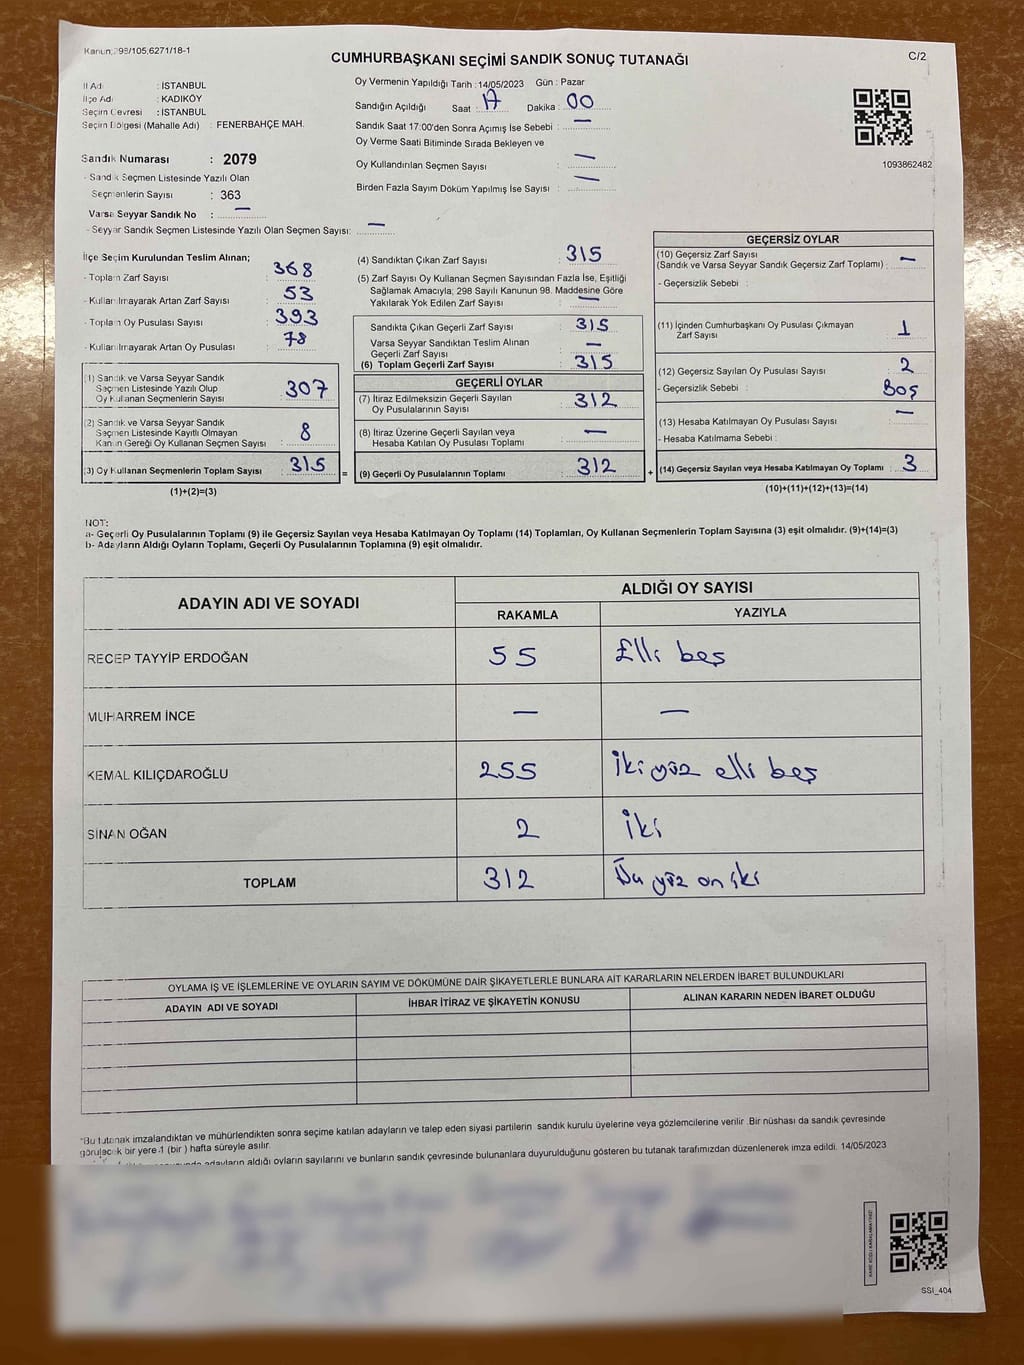 Kanun:298/105,6271/18-1
CUMHURBAŞKANI SEÇİMİ SANDIK SONUÇ TUTANAĞI
C/2
İl Adı : İSTANBUL
İlçe Adı : KADIKÖY
Seçim Çevresi : İSTANBUL
Seçim Bölgesi (Mahalle Adı) : FENERBAHÇE MAH.
Sandık Numarası : 2079
- Sandık Seçmen Listesinde Yazılı Olan
Seçmenlerin Sayısı : 363
Varsa Seyyar Sandık No : —
- Seyyar Sandık Seçmen Listesinde Yazılı Olan Seçmen Sayısı: —
Oy Vermenin Yapıldığı Tarih : 14/05/2023 Gün : Pazar
Sandığın Açıldığı Saat : 17 Dakika : 00
Sandık Saat 17:00'den Sonra Açımış İse Sebebi : —
Oy Verme Saati Bitiminde Sırada Bekleyen ve
Oy Kullandırılan Seçmen Sayısı : —
Birden Fazla Sayım Döküm Yapılmış İse Sayısı : —
1093862482
İlçe Seçim Kurulundan Teslim Alınan;
- Toplam Zarf Sayısı : 368
- Kullanılmayarak Artan Zarf Sayısı : 53
- Toplam Oy Pusulası Sayısı : 393
- Kullanılmayarak Artan Oy Pusulası : 78
(1) Sandık ve Varsa Seyyar Sandık
Seçmen Listesinde Yazılı Olup
Oy Kullanan Seçmenlerin Sayısı : 307
(2) Sandık ve Varsa Seyyar Sandık
Seçmen Listesinde Kayıtlı Olmayan
Kanun Gereği Oy Kullanan Seçmen Sayısı : 8
(3) Oy Kullanan Seçmenlerin Toplam Sayısı : 315
(1)+(2)=(3)
=
(4) Sandıktan Çıkan Zarf Sayısı : 315
(5) Zarf Sayısı Oy Kullanan Seçmen Sayısından Fazla İse, Eşitliği
Sağlamak Amacıyla; 298 Sayılı Kanunun 98. Maddesine Göre
Yakılarak Yok Edilen Zarf Sayısı : —
Sandıkta Çıkan Geçerli Zarf Sayısı : 315
Varsa Seyyar Sandıktan Teslim Alınan
Geçerli Zarf Sayısı : —
(6) Toplam Geçerli Zarf Sayısı : 315
GEÇERLİ OYLAR
(7) İtiraz Edilmeksizin Geçerli Sayılan
Oy Pusulalarının Sayısı : 312
(8) İtiraz Üzerine Geçerli Sayılan veya
Hesaba Katılan Oy Pusulası Toplamı : —
(9) Geçerli Oy Pusulalarının Toplamı : 312
+
GEÇERSİZ OYLAR
(10) Geçersiz Zarf Sayısı
(Sandık ve Varsa Seyyar Sandık Geçersiz Zarf Toplamı) : —
- Geçersizlik Sebebi :
(11) İçinden Cumhurbaşkanı Oy Pusulası Çıkmayan
Zarf Sayısı : 1
(12) Geçersiz Sayılan Oy Pusulası Sayısı : 2
- Geçersizlik Sebebi : Boş
(13) Hesaba Katılmayan Oy Pusulası Sayısı : —
- Hesaba Katılmama Sebebi :
(14) Geçersiz Sayılan veya Hesaba Katılmayan Oy Toplamı : 3
(10)+(11)+(12)+(13)=(14)
NOT:
a- Geçerli Oy Pusulalarının Toplamı (9) ile Geçersiz Sayılan veya Hesaba Katılmayan Oy Toplamı (14) Toplamları, Oy Kullanan Seçmenlerin Toplam Sayısına (3) eşit olmalıdır. (9)+(14)=(3)
b- Adayların Aldığı Oyların Toplamı, Geçerli Oy Pusulalarının Toplamına (9) eşit olmalıdır.
ADAYIN ADI VE SOYADI
ALDIĞI OY SAYISI
RAKAMLA YAZIYLA
RECEP TAYYİP ERDOĞAN 55 Elli beş
MUHARREM İNCE — —
KEMAL KILIÇDAROĞLU 255 İki yüz elli beş
SİNAN OĞAN 2 İki
TOPLAM 312 Üç yüz on iki
OYLAMA İŞ VE İŞLEMLERİNE VE OYLARIN SAYIM VE DÖKÜMÜNE DAİR ŞİKAYETLERLE BUNLARA AİT KARARLARIN NELERDEN İBARET BULUNDUKLARI
ADAYIN ADI VE SOYADI İHBAR İTİRAZ VE ŞİKAYETİN KONUSU ALINAN KARARIN NEDEN İBARET OLDUĞU
*Bu tutanak imzalandıktan ve mühürlendikten sonra seçime katılan adayların ve talep eden siyasi partilerin sandık kurulu üyelerine veya gözlemcilerine verilir. Bir nüshası da sandık çevresinde
görülecek bir yere 1 (bir) hafta süreyle asılır.
adayların aldığı oyların sayılarını ve bunların sandık çevresinde bulunanlara duyurulduğunu gösteren bu tutanak tarafımızdan düzenlenerek imza edildi. 14/05/2023
SSI_404